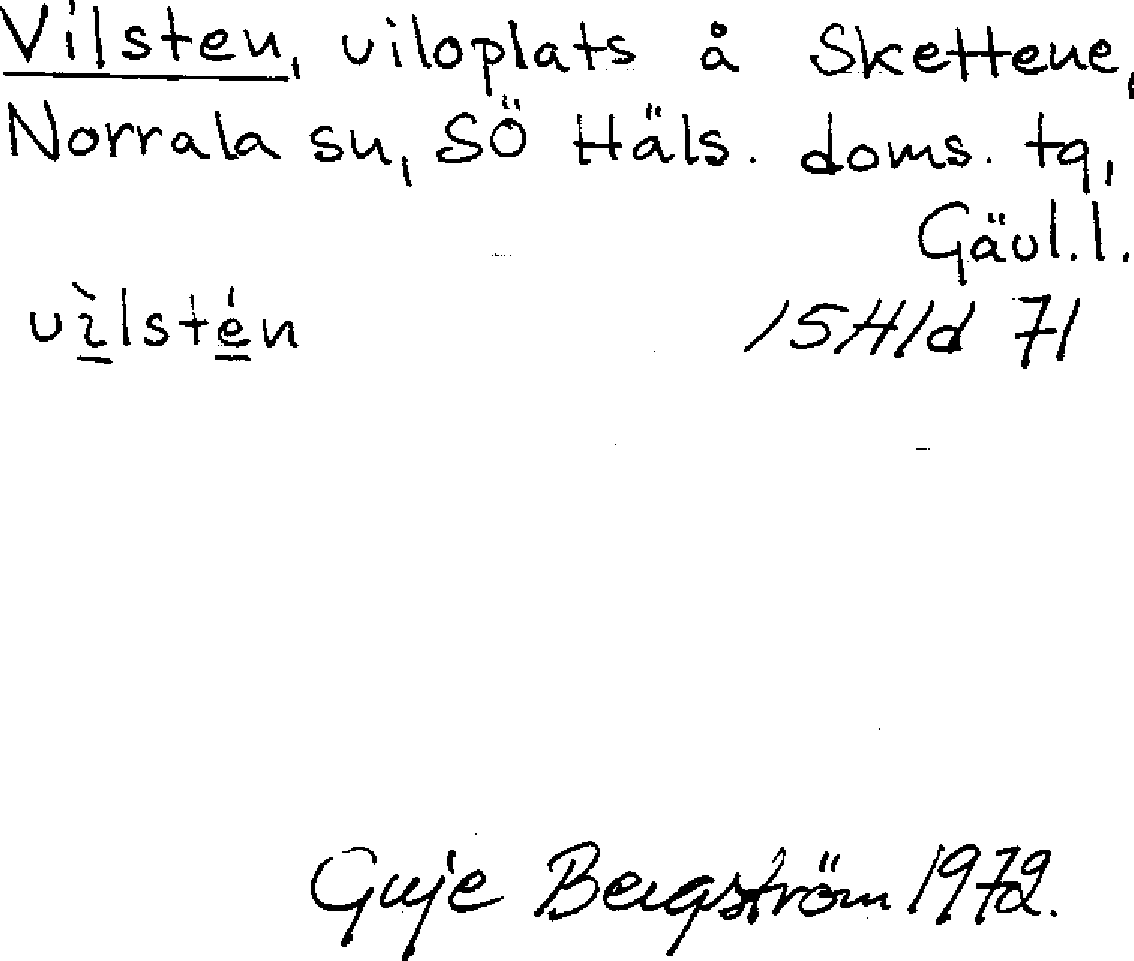 Vilsten, viloplats å Skettene,
Norrala sn, SÖ Häls. doms. tg,
Gävl.l.
vìlstén
15H1d 71
Guje Bergström 1972.